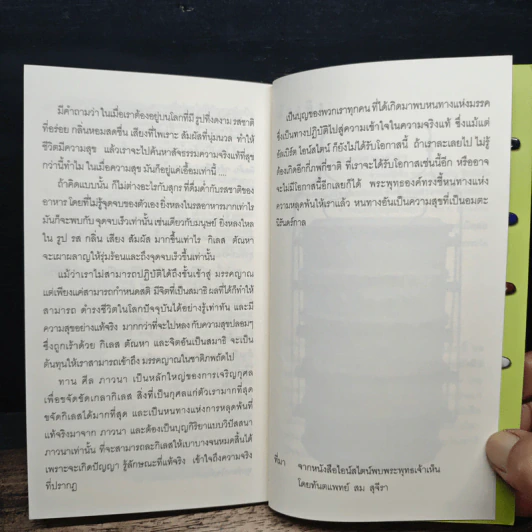 มีคำถามว่า ในเมื่อเราต้องอยู่บนโลกที่มี รูปที่งดงาม รสชาติ
ที่อร่อย กลิ่นหอมสดชื่น เสียงที่ไพเราะ สัมผัสที่นุ่มนวล ทำให้
ชีวิตมีความสุข แล้วเราจะไปค้นหาสัจธรรมความจริงแท้ที่สุข
กว่านี้ทำไม ในเมื่อความสุข มันก็อยู่แค่เอื้อมเท่านี้ ...
ถ้าคิดแบบนั้น ก็ไม่ต่างอะไรกับสุกร ที่ดื่มด่ำกับรสชาติของ
อาหาร โดยที่ไม่รู้จุดจบของตัวเอง ยิ่งหลงในรสอาหารมากเท่าไร
มันก็จะพบกับ จุดจบเร็วเท่านั้น เช่นเดียวกับมนุษย์ ยิ่งหลงใหล
ใน รูป รส กลิ่น เสียง สัมผัส มากขึ้นเท่าไร กิเลส ตัณหา
จะเผาผลาญให้รุ่มร้อนและถึงจุดจบเร็วขึ้นเท่านั้น
แม้ว่าเราไม่สามารถปฏิบัติได้ถึงขั้นเข้าสู่ มรรคญาณ
แต่เพียงแค่สามารถกำหนดสติ มีจิตที่เป็นสมาธิ ผลที่ได้ก็ทำให้
สามารถ ดำรงชีวิตในโลกปัจจุบันได้อย่างรู้เท่าทัน และมี
ความสุขอย่างแท้จริง มากกว่าที่จะไปหลงกับความสุขปลอมๆ
ซึ่งถูกเร้าด้วย กิเลส ตัณหา และจิตอันเป็นสมาธิ จะเป็น
ต้นทุนให้เราสามารถเข้าถึง มรรคญาณในชาติภพถัดไป
ทาน ศีล ภาวนา เป็นหลักใหญ่ของการเจริญกุศล
เพื่อขจัดขัดเกลากิเลส สิ่งที่เป็นกุศลแก่ตัวเรามากที่สุด
ขจัดกิเลสได้มากที่สุด และเป็นหนทางแห่งการหลุดพ้นที่
แท้จริงมาจาก ภาวนา และต้องเป็นบุญกิริยาแบบวิปัสสนา
ภาวนาเท่านั้น ที่จะสามารถละกิเลสให้เบาบางจนหมดสิ้นได้
เพราะจะเกิดปัญญา รู้ลักษณะที่แท้จริง เข้าใจถึงความจริง
ที่ปรากฏ
เป็นบุญของพวกเราทุกคน ที่ได้เกิดมาพบหนทางแห่งมรรค
ซึ่งเป็นทางปฏิบัติไปสู่ความเข้าใจในความจริงแท้ ซึ่งแม้แต่
อัลเบิร์ต ไอน์สไตน์ ก็ยังไม่ได้รับโอกาสนี้ ถ้าเราละเลยไป ไม่รู้
ต้องเกิดอีกกี่ภพกี่ชาติ ที่เราจะได้รับโอกาสเช่นนี้อีก หรืออาจ
จะไม่มีโอกาสนี้อีกเลยก็ได้ พระพุทธองค์ทรงชี้หนทางแห่ง
ความหลุดพ้นให้เราแล้ว หนทางอันเป็นความสุขที่เป็นอมตะ
นิรันดร์กาล
ที่มา จากหนังสือไอน์สไตน์พบพระพุทธเจ้าเห็น
โดยทันตแพทย์ สม สุจีรา